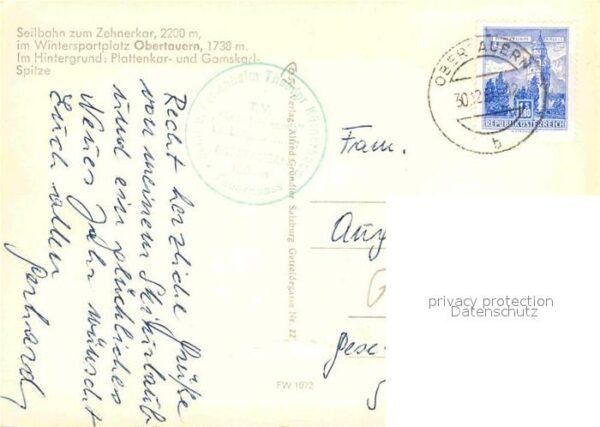 Seilbahn zum Zehnerkar, 2200 m,
im Wintersportplatz Obertauern, 1738 m.
Im Hintergrund: Plattenkar- und Gamskarl-
Spitze
Recht herzliche Grüße
von meinem Skiurlaub
und ein glückliches
Neues Jahr wünscht
Euch allen
Gerhard
Verlag Alfred Gründler Salzburg Getreidegasse Nr. 22
FW 1072
OBERTAUERN
30.12.
b
REPUBLIK ÖSTERREICH
Fam.
privacy protection
Datenschutz